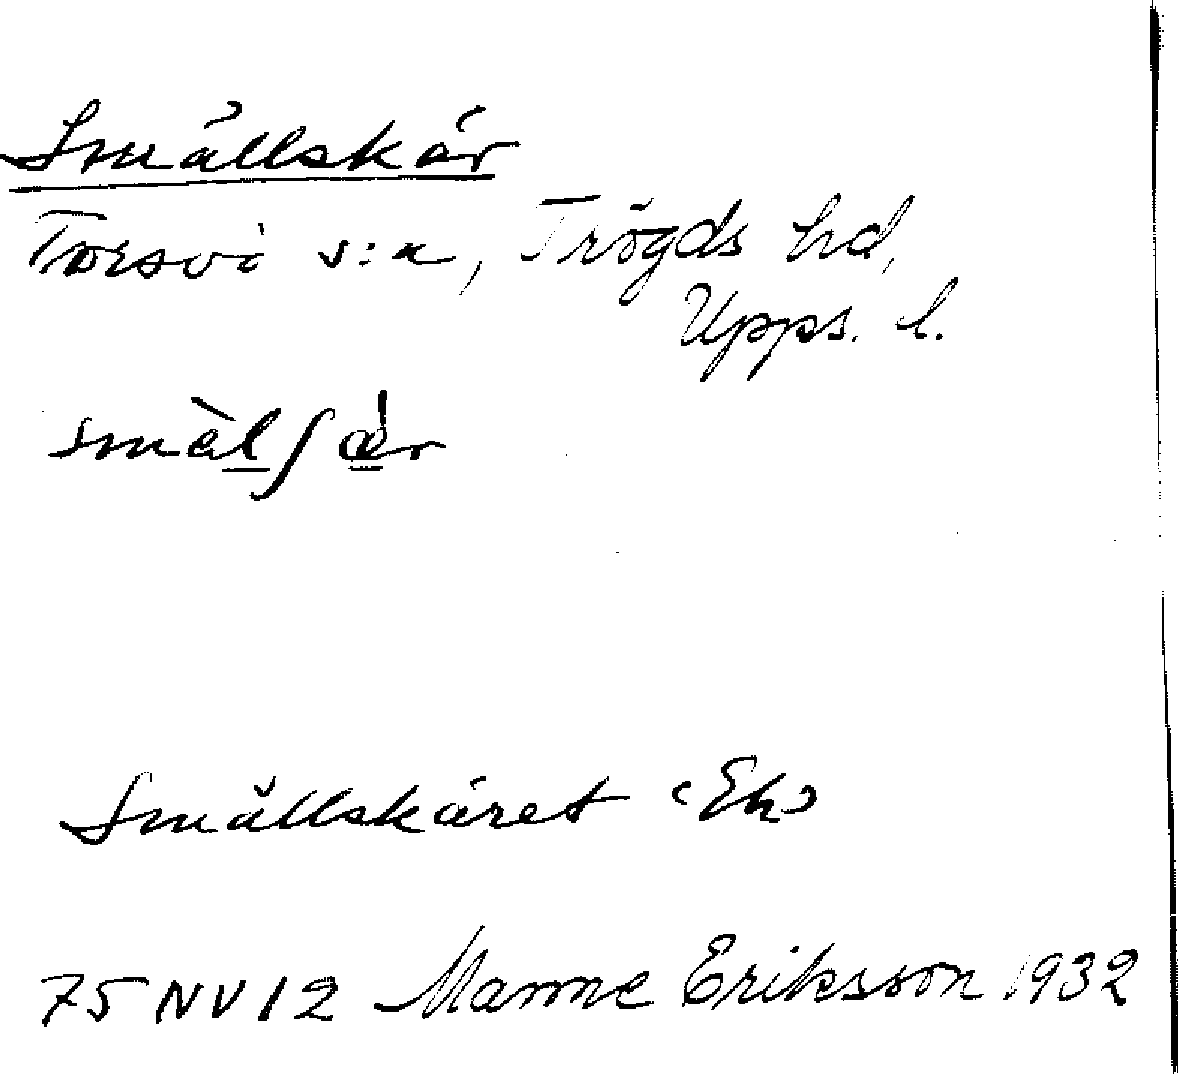 Smällskär
Torsvi s:n, Trögds hd,
Upps. l.
Smällskäret (Ek)
75 NV 12 Manne Eriksson 1932